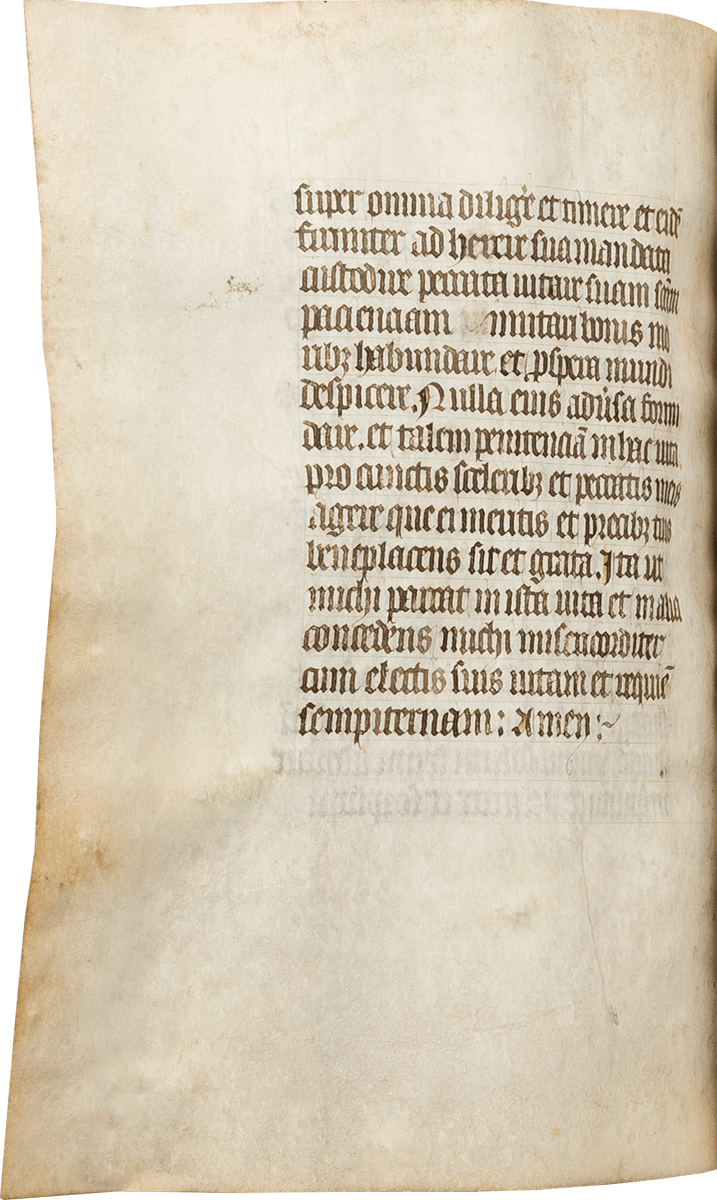 super omnia diligere et timere et eidem
firmiter ad herere sua mandata
custodire peccata vitare suam
pacienciam imitari bonis mo
ribꝫ habundare. et ꝓspera mundi
despicere. Nulla eius adũsa formi
dare. et talem penitenciā in hac vita
pro cunctis sceleribꝫ et peccatis meis
agere que ei mentis et precibꝫ
beneplacens sit et grata. Ita ut
michi parcat in ista vita et
concedens michi misericorditer
cum electis suis vitam et requiē
sempiternam: Amen:~